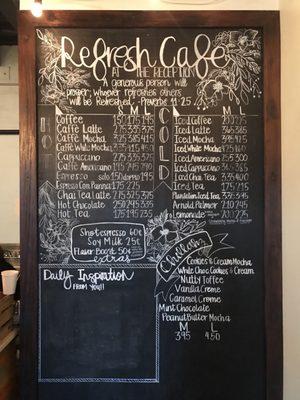 Refresh Café
AT THE RECEPTION
A generous person will
prosper; whoever refreshes others
will be Refreshed. - Proverbs 11:25
HOT
S M L
Coffee 150 175 195
Caffe Latte 275 335 375
Caffe Mocha 315 385
Caffe White Mocha
Cappuccino
Caffe Americano
Espresso solo
Espresso Con Panna 175 225
Chai Tea Latte 275 325 375
Hot Chocolate
Hot Tea 175 195 235
COLD
M L
Iced Coffee
Iced Latte
Iced Mocha
Iced White Mocha
Iced Americano 255 300
Iced Cappuccino
Iced Chai Tea
Iced Tea 175 215
Plantation Iced Tea
Arnold Palmer
Lemonade
Shot espresso 60¢
Soy Milk 25¢
Flavor Boost 50¢
extras
Daily Inspiration
FROM YOU!!
Chillers
Cookies & Cream Mocha
White Choc Cookies & Cream
Nutty Toffee
Vanilla Creme
Caramel Creme
Mint Chocolate
Peanut Butter Mocha
M L
3.95 4.50